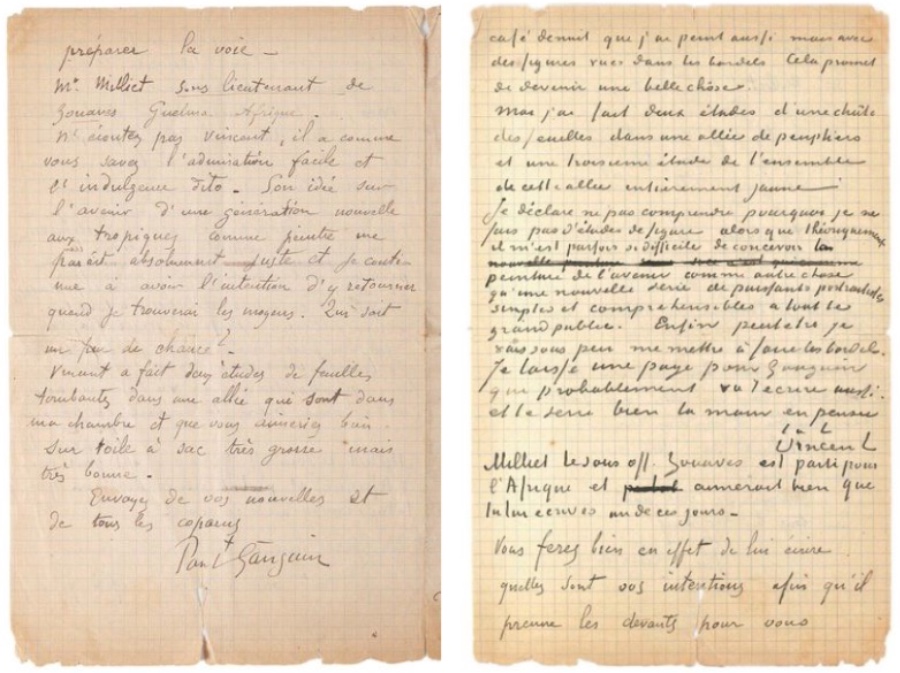 préparer la voie –
Mr Milliet sous lieutenant de
zouaves Guelma Afrique.
N'écoutez pas Vincent, il a comme
vous savez l'admiration facile et
l'indulgence dito. Son idée sur
l'avenir d'une génération nouvelle
aux tropiques comme peintre me
parait absolument juste et je conti
nue à avoir l'intention d'y retourner
quand je trouverai les moyens. Qui sait
un peu de chance?
Vincent a fait deux études de feuilles
tombantes dans une allée qui sont dans
ma chambre et que vous aimeriez bien
sur toile à sac très grosse mais
très bonne.
Envoyez de vos nouvelles et
de tous les copains
Paul Gauguin
café de nuit que j'ai peint aussi mais avec
des figures vues dans les bordels Cela promet
de devenir une belle chôse.
moi j'ai fait deux études d'une chûte
des feuilles dans une allée de peupliers
et une troisieme étude de l'ensemble
de cette allée entièrement jaune
Je déclare ne pas comprendre pourquoi je ne
fais pas d'études de figure alors que théoriquement
il m'est parfois si difficile de concevoir la
peinture de l'avenir comme autre chose
qu'une nouvelle serie de puissants portraitistes
simples et comprehensibles a tout le
grand public. Enfin peut etre je
vais sous peu me mettre à faire les bordels.
Je laisse une page pour Gauguin
qui probablement va t'ecrire aussi.
et te serre bien la main en pensée
t. à t.
Vincent
Milliet le sous off. Zouaves est parti pour
l'Afrique et aimerait bien que
tu lui ecrives un de ces jours –
Vous ferez bien en effet de lui écrire
quelles sont vos intentions afin qu'il
prenne les devants pour vous